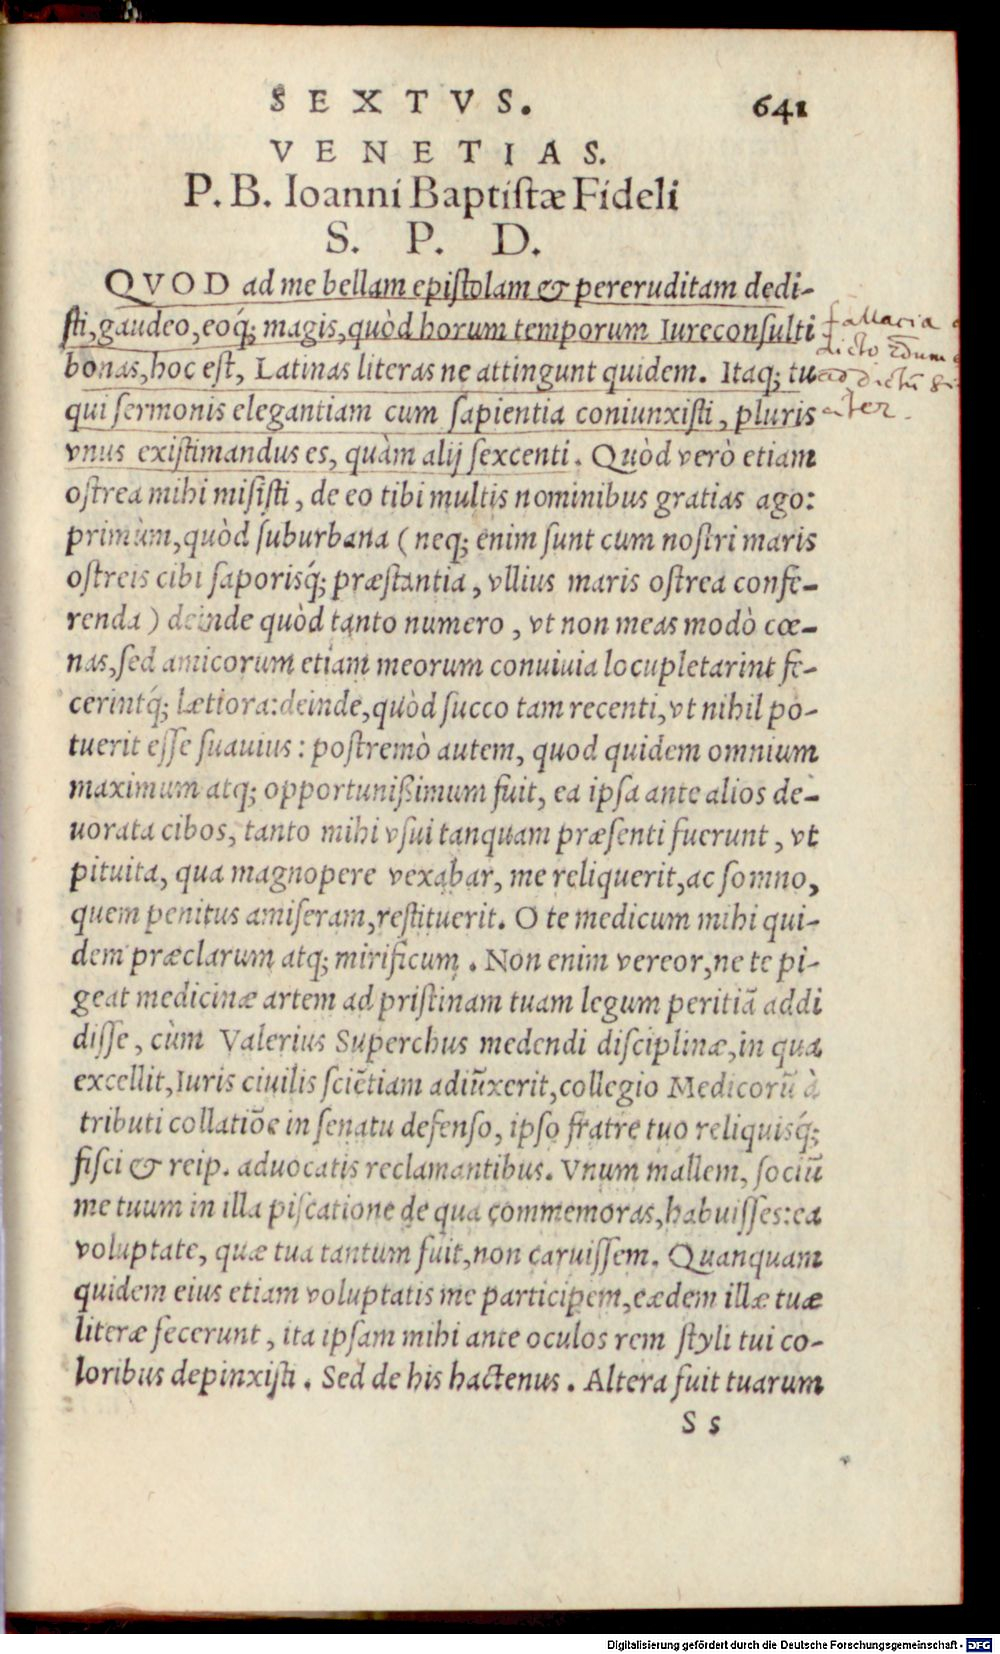 SEXTVS. 641
VENETIAS.
P. B. Ioanni Baptiſtæ Fideli
S. P. D.
QVOD ad me bellam epiſtolam & pereruditam dedi-
ſti, gaudeo, eoq́; magis, quòd horum temporum Iureconſulti
bonas, hoc eſt, Latinas literas ne attingunt quidem. Itaq; tu
qui ſermonis elegantiam cum ſapientia coniunxiſti, pluris
vnus exiſtimandus es, quàm alij ſexcenti. Quòd verò etiam
oſtrea mihi miſiſti, de eo tibi multis nominibus gratias ago:
primùm, quòd ſuburbana (neq; enim ſunt cum noſtri maris
oſtreis cibi ſaporisq́; præſtantia, vllius maris oſtrea confe-
renda) deinde quòd tanto numero, vt non meas modò cœ-
nas, ſed amicorum etiam meorum conuiuia locupletarint fe-
cerintq́; lætiora: deinde, quòd ſucco tam recenti, vt nihil po-
tuerit eſſe ſuauius: poſtremò autem, quod quidem omnium
maximum atq; opportunißimum fuit, ea ipſa ante alios de-
uorata cibos, tanto mihi vſui tanquam præſenti fuerunt, vt
pituita, qua magnopere vexabar, me reliquerit, ac ſomno,
quem penitus amiſeram, reſtituerit. O te medicum mihi qui-
dem præclarum atq; mirificum. Non enim vereor, ne te pi-
geat medicinæ artem ad priſtinam tuam legum peritiã addi
diſſe, cùm Valerius Superchus medendi diſciplinæ, in qua
excellit, Iuris ciuilis ſciẽtiam adiũxerit, collegio Medicorũ à
tributi collatiõe in ſenatu defenſo, ipſo fratre tuo reliquisq́;
fiſci & reip. aduocatis reclamantibus. Vnum mallem, ſociũ
me tuum in illa piſcatione de qua commemoras, habuiſſes: ea
voluptate, quæ tua tantum fuit, non caruiſſem. Quanquam
quidem eius etiam voluptatis me participem, eædem illæ tuæ
literæ fecerunt, ita ipſam mihi ante oculos rem ſtyli tui co-
loribus depinxiſti. Sed de his hactenus. Altera fuit tuarum
S s
fallacia
dicto
ad dictũ
Digitalisierung gefördert durch die Deutsche Forschungsgemeinschaft - DFG